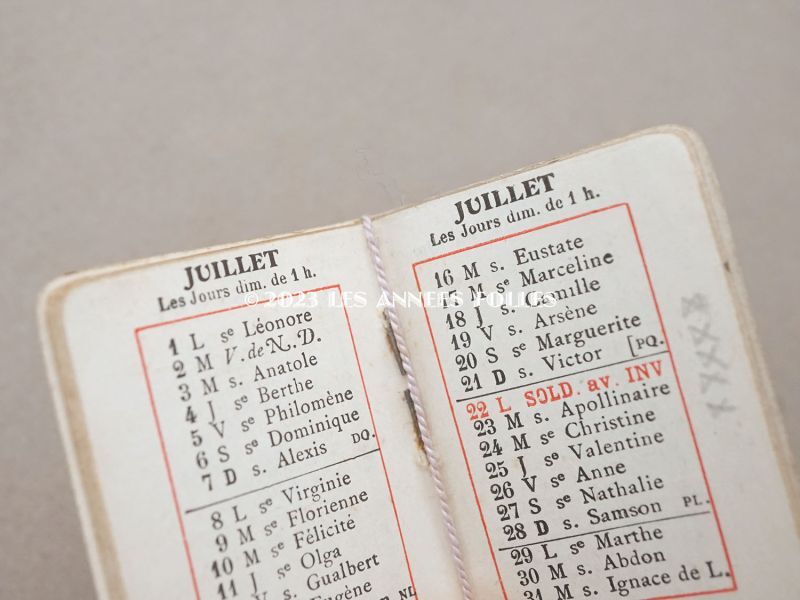 JUILLET
Les Jours dim. de 1 h.
1 L se Léonore
2 M V. de N. D.
3 M s. Anatole
4 J se Berthe
5 V se Philomène
6 S se Dominique
7 D s. Alexis DQ.
8 L se Virginie
9 M se Florienne
10 M se Félicité
11 J se Olga
V s. Gualbert
Eugène NL
JUILLET
Les Jours dim. de 1 h.
16 M s. Eustate
17 M se Marceline
18 J s. Camille
19 V s. Arsène
20 S se Marguerite
21 D s. Victor [PQ.
22 L SOLD. av. INV
23 M s. Apollinaire
24 M se Christine
25 J se Valentine
26 V se Anne
27 S se Nathalie
28 D s. Samson PL.
29 L se Marthe
30 M s. Abdon
31 M s. Ignace de L.
© 2023 LES ANNEES FOLLES